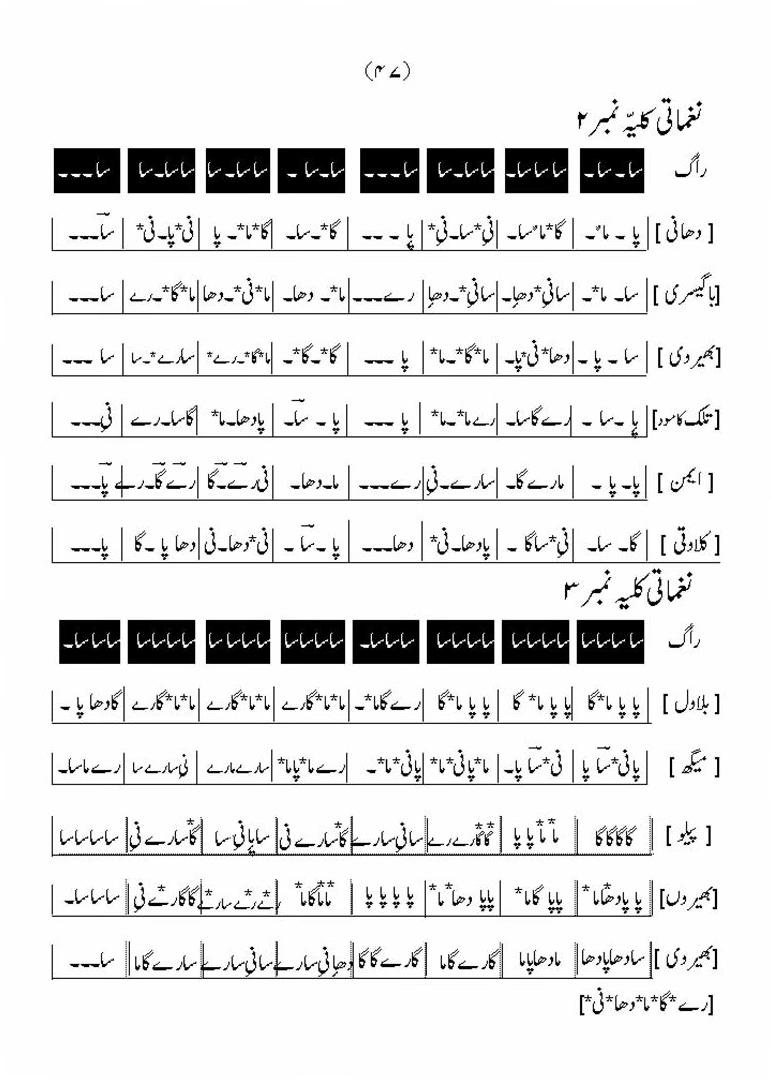 (۴۷)
نغماتی کلیّہ نمبر ۲
راگ سا۔سا۔ سا سا سا۔ سا۔سا۔سا سا۔۔۔ سا۔سا ۔ سا سا۔ سا سا۔سا۔سا سا۔۔۔
[ دھانی ] پا ۔ ما*۔ گا*ما*سا۔ نی*سا۔نی* پا ۔ ۔۔ گا*۔سا۔ گا*ما*۔ پا نی*پا۔نی* سا۔۔۔
[باگیسری ] سا۔ ما*۔ سانی*دھا۔ سانی*۔دھا رے۔۔۔ ما*۔ دھا۔ ما*نی*۔دھا ما*گا*۔رے سا۔۔۔
[بھیروی ] سا ۔ پا ۔ دھا*نی*پا۔ ما*گا*۔ما* پا ۔۔۔ گا*۔گا*۔ ما*گا*۔رے* سارے*۔سا سا ۔۔۔
[تلک کامود] پا ۔سا ۔ رے گاسا۔ رے ما*۔ما* پا ۔۔۔ پا ۔ سا۔ پادھا۔ما* گاسا۔رے نی۔۔۔
[ ایمن ] پا۔ پا ۔ مارے گا۔ سارے۔نی رے۔۔۔ ما۔دھا۔ نی رے۔گا رے گا۔رے پا۔۔۔
[ کلاوتی ] گا۔ سا۔ نی*ساگا ۔ پادھا۔نی* دھا۔۔۔ پا ۔سا ۔ نی*دھا۔نی دھا پا ۔گا پا۔۔۔
نغماتی کلیہ نمبر ۳
راگ سا سا سا سا سا سا سا سا سا سا سا سا سا سا سا۔ سا سا سا سا سا سا سا سا سا سا سا سا سا سا سا۔
[ بلاول ] پا پا ما*گا پا پا ما* گا پا پا ما*گا رے گا ما*۔ ما*ما*گارے ما*ما*گارے ما*ما*گارے گادھا پا ۔
[ میگھ ] پانی*سا پا نی*سا پا۔ ما*پانی*ما* پانی*ما*۔ رے ما*پاما* سارے مارے نی سارے سا رے ماسا۔
[ پیلو ] گا گا گا گا ما*ما*پا پا گا*گا*رے رے سانی سارے گا*سارے نی ساپانی سا گا*سارے نی سا سا سا سا
[بھیروں] پا پادھا*ما* پاپا گاما* پاپا دھا*ما* پا پا پا پا ما*ما*گاما* رے*رے*سارے* گاگارے*نی سا سا سا۔
[بھیروی ] سادھاپادھا مادھاپاما گارے گاما گارے گا گا دھانی سارے سانی سارے سارے گاما سا۔۔۔
[رے*گا*ما*دھا*نی*]